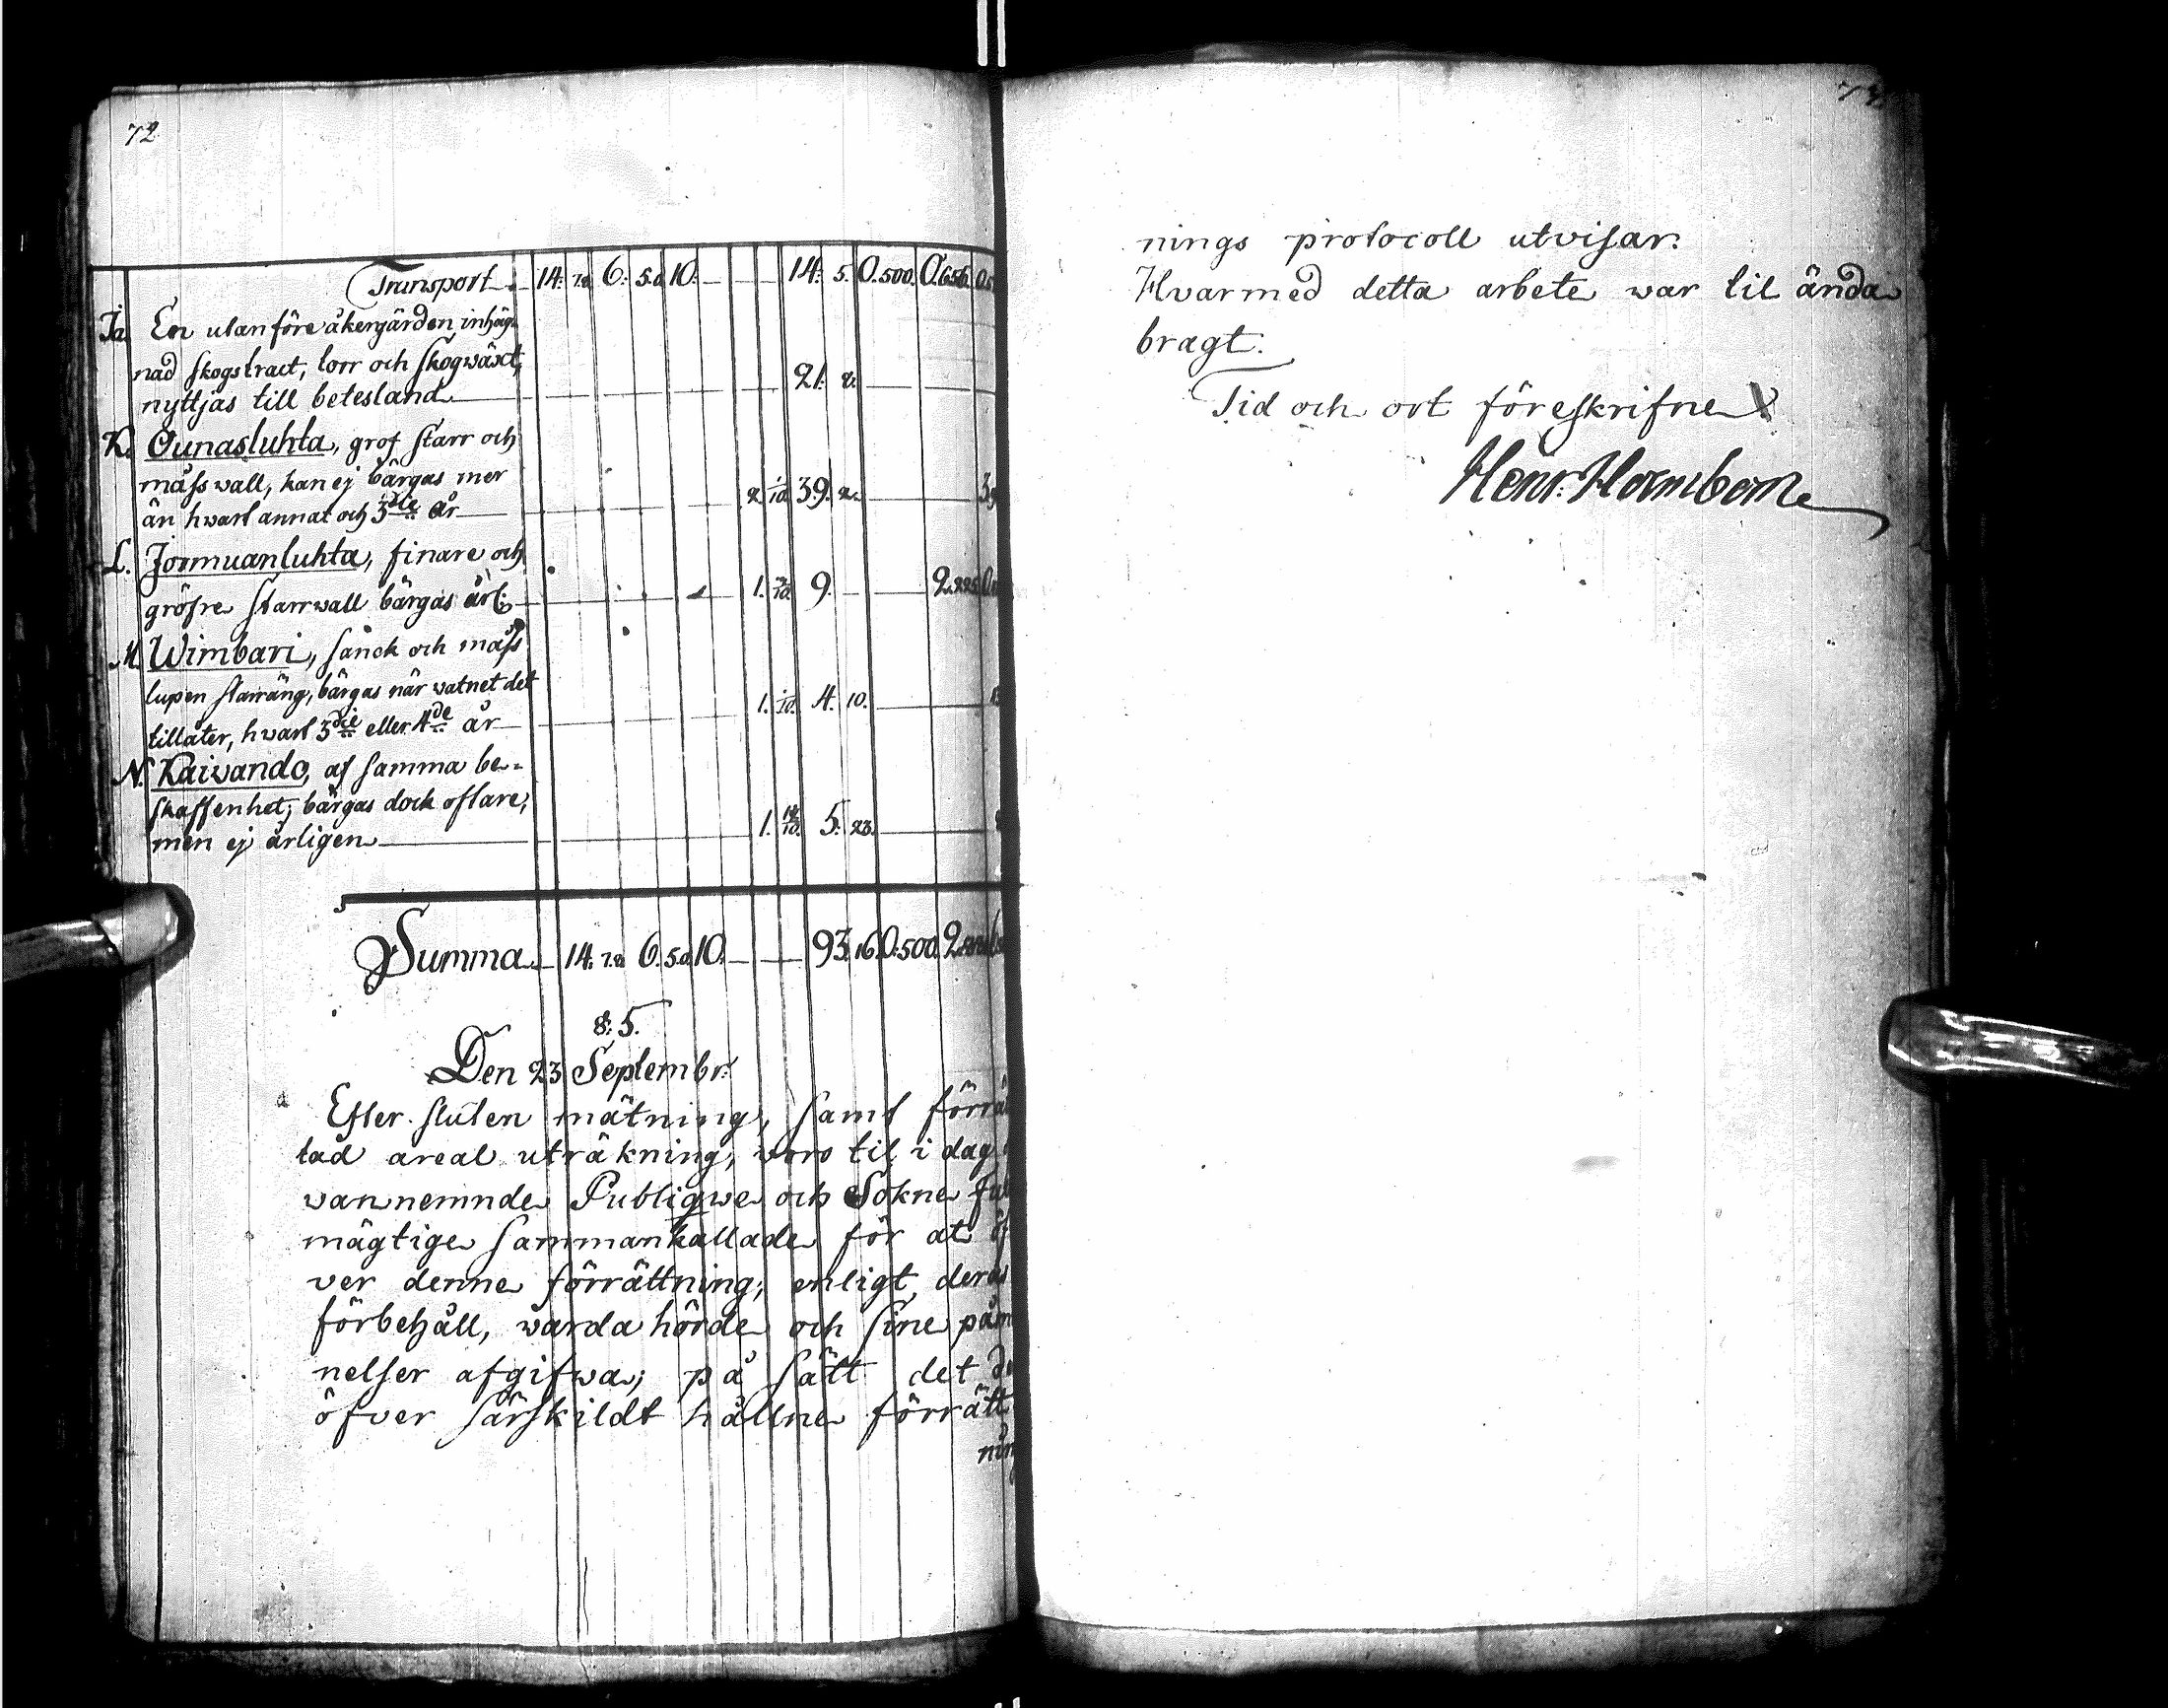 72
Transport 14. 7.8 6. 5.0 10. 14. 5. 0.500. 0.656.
Ja. En utanföre åkergärden inhäg-
nad skogstract, torr och skogwäxt,
nyttjas till betesland 21. 8.
K. Ounasluhta, grof starr och
måsswall, kan ej bärgas mer
än hwart annat och 3die år 2. 39. 2.
L. Jormuanluhta, finare och
gröfre starrwall bärgas årl: 1. 9. 2.225
M. Wimbari, sanck och måss
lupen starräng, bärgas när watnet det
tillåter, hwart 3die eller 4de år 1. 4. 10.
N. Kaivando, af samma be-
skaffenhet, bärgas dock oftare,
men ej årligen 1. 5. 23.
Summa 14. 7.8 6. 5.0 10. 93. 16 0.500. 2.
8. 5.
Den 23 Septembr:
Efter sluten mätning, samt förrät
tad areal uträkning, woro til i dag
vannemnde Publiqwe och Sokne full
mägtige sammankallade för at öf
ver denne förrättning, enligt deras
förbehåll, warda hörde och sine påm
nelser afgifwa; på sätt det
öfver särskildt hållne förrätt
ning
nings protocoll utvisar.
Hvarmed detta arbete war til ända
bragt.
Tid och ort föreskrifne
Henr: Hornborn